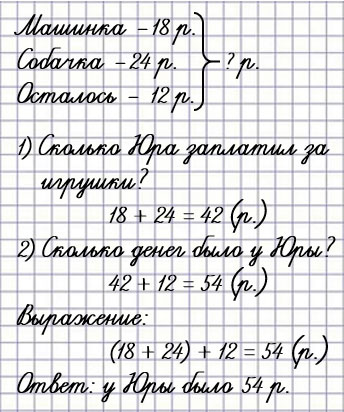 Машинка - 18 р.
Собачка - 24 р. - ? р.
Осталось - 12 р.
1) Сколько Юра заплатил за
игрушки?
18 + 24 = 42 (р.)
2) Сколько денег было у Юры?
42 + 12 = 54 (р.)
Выражение:
(18 + 24) + 12 = 54 (р.)
Ответ: у Юры было 54 р.